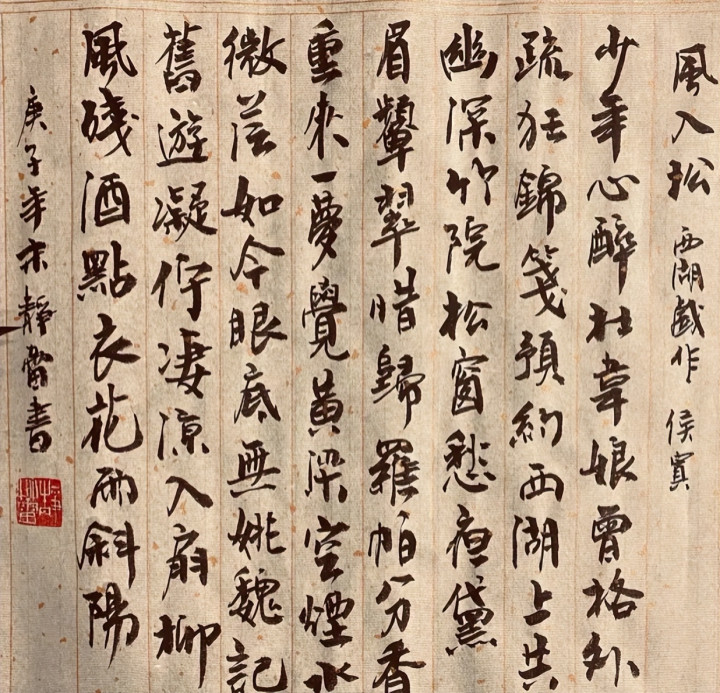 風入松 西湖戲作 侯寘
少年心醉杜韋娘曾格外
疏狂錦箋預約西湖上共
幽深竹院松窗愁夜黛
眉顰翠惜歸羅帕分香
重來一夢覺黃梁空煙水
微茫如今眼底無姚魏記
舊遊凝佇凄涼入扇柳
風殘酒點衣花雨斜陽
庚子年末靜蕾書